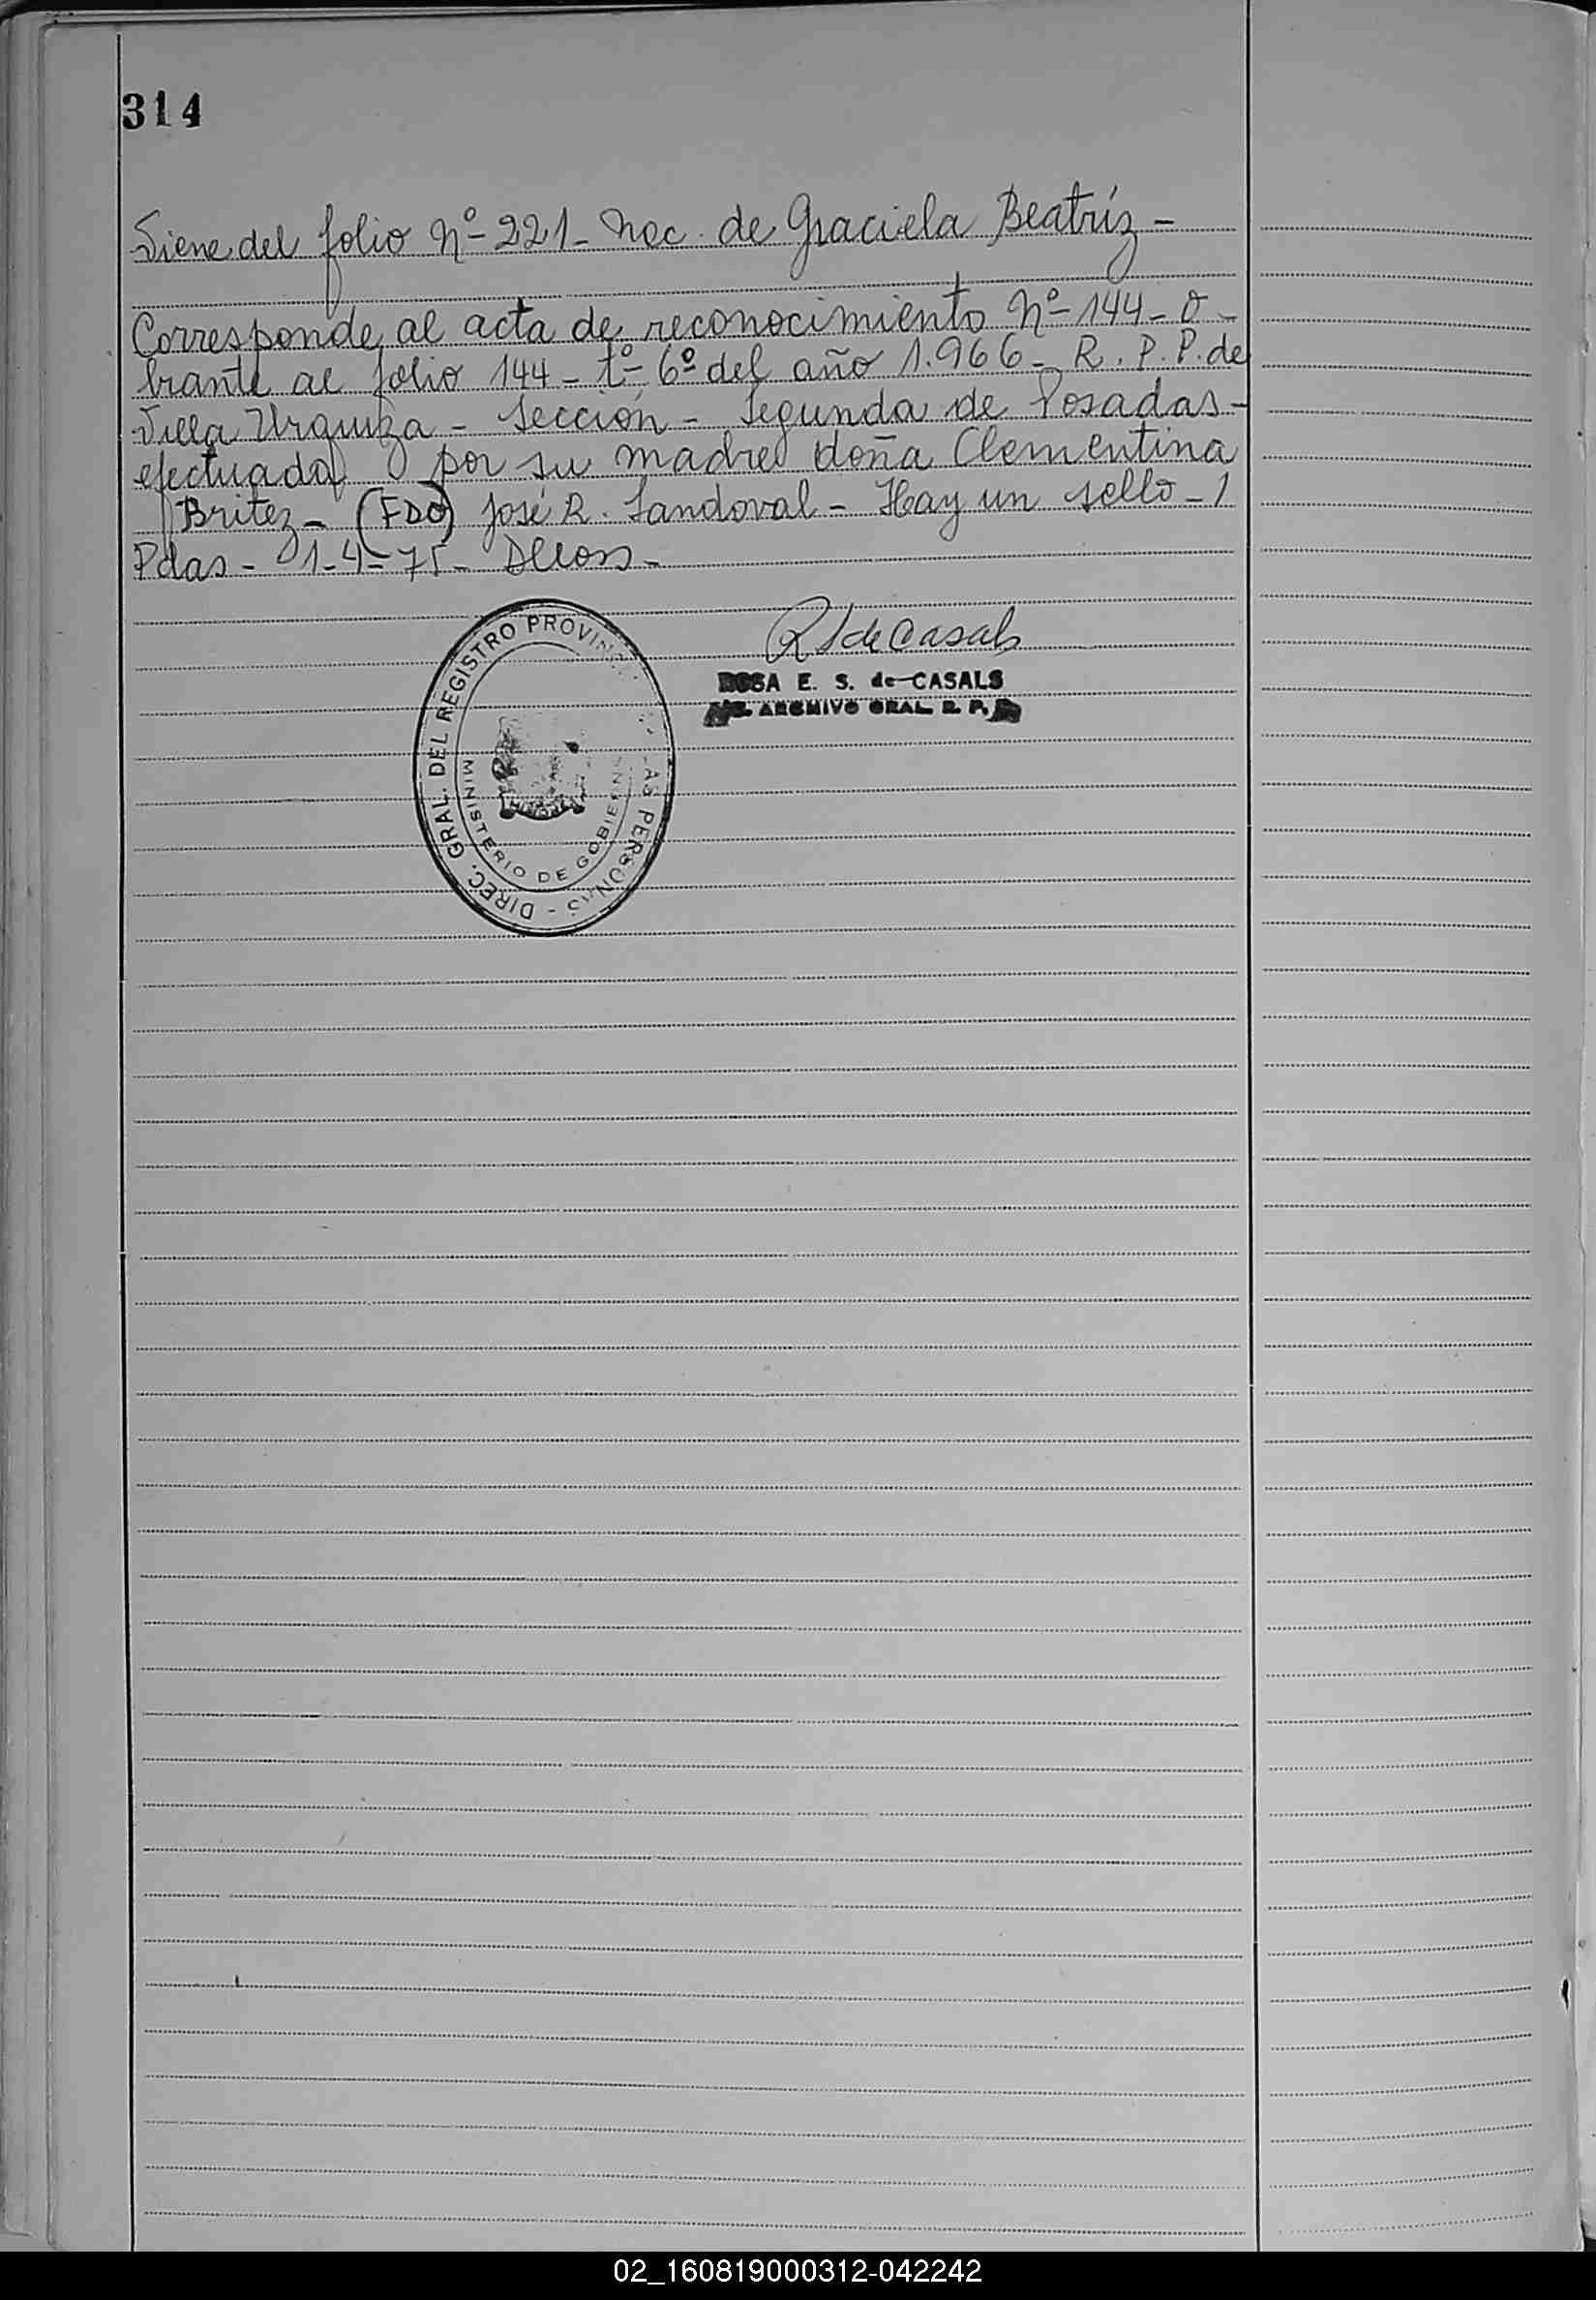 314
Viene del folio Nº 221 - Nac. de Graciela Beatríz -
Corresponde al acta de reconocimiento Nº 144 - O -
brante al folio 144 - tº 6º del año 1.966 - R. P. P. de
Villa Urquiza - Sección - Segunda de Posadas -
efectuada por su madre doña Clementina
Britez - (FDO) José R. Sandoval - Hay un sello - 1
Pdas - 1-4-75 -
R S de Casals
ROSA E. S. de CASALS
ARCHIVO GRAL. R. P. P.
DIREC. GRAL. DEL REGISTRO PROVINC LAS PERSONAS -
MINISTERIO DE GOBIERNO
02_160819000312-042242